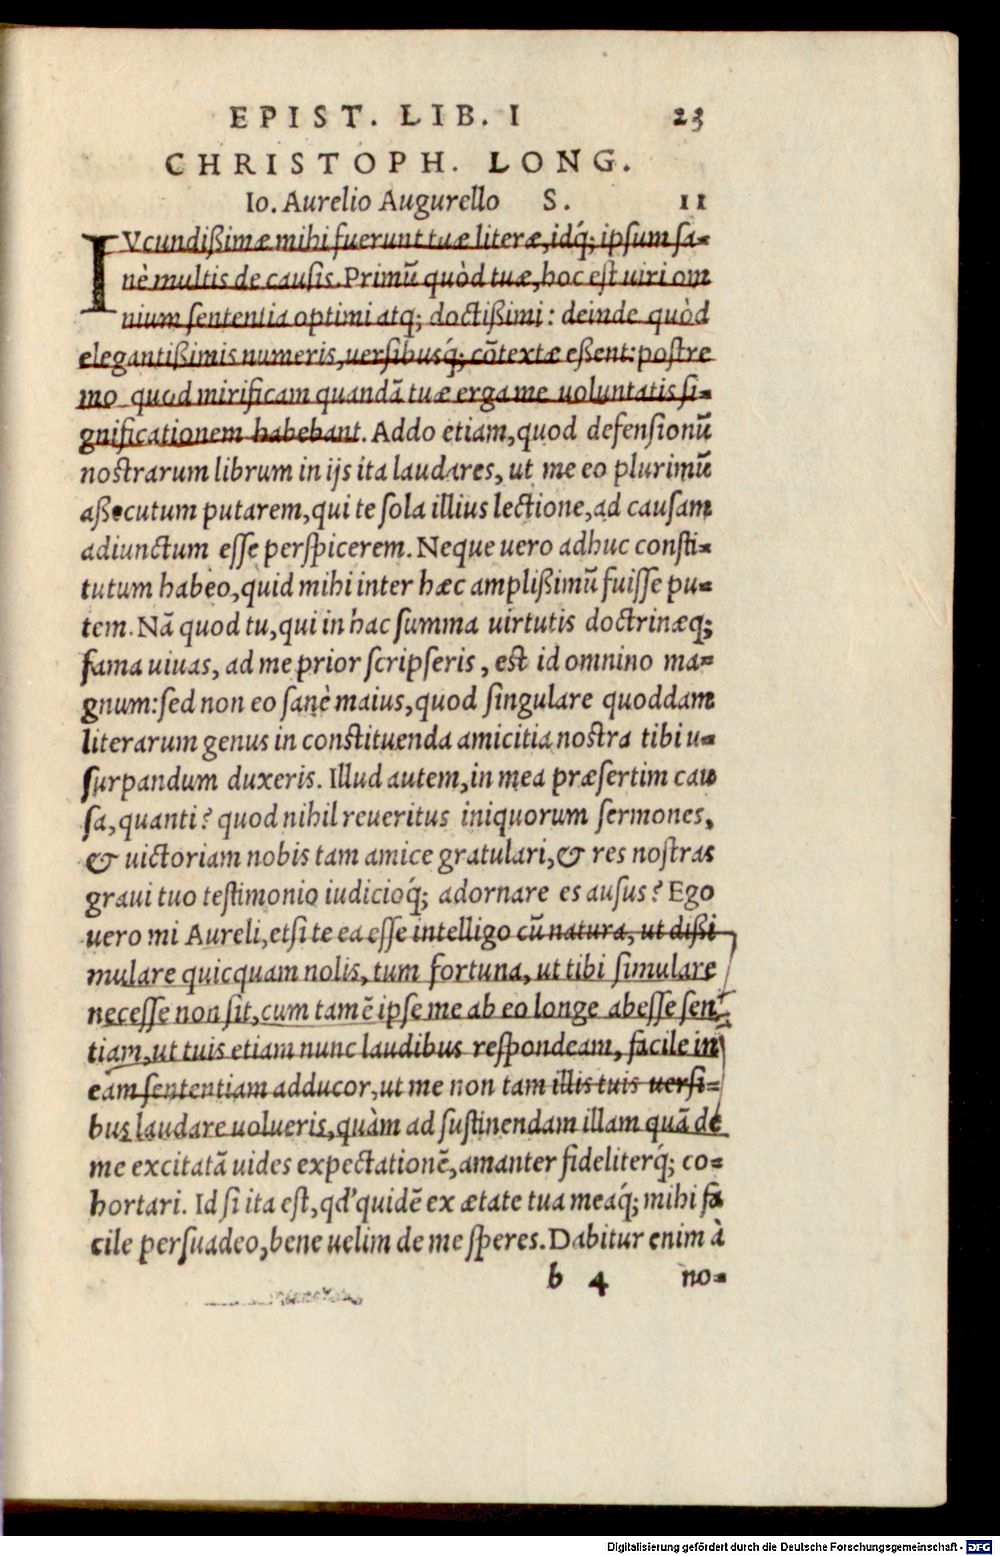 EPIST. LIB. I 23
CHRISTOPH. LONG.
Io. Aurelio Augurello S. 11
IVcundißimæ mihi fuerunt tuæ literæ, idq́; ipsum sa-
nè multis de causis. Primū quòd tuæ, hoc est uiri om
nium sententia optimi atq; doctißimi: deinde quòd
elegantißimis numeris, uersibusq́; cōtextæ eßent: postre
mo quod mirificam quandā tuæ erga me uoluntatis si-
gnificationem habebant. Addo etiam, quod defensionū
nostrarum librum in ijs ita laudares, ut me eo plurimū
aßecutum putarem, qui te sola illius lectione, ad causam
adiunctum esse perspicerem. Neque uero adhuc consti-
tutum habeo, quid mihi inter hæc amplißimū fuisse pu-
tem. Nā quod tu, qui in hac summa uirtutis doctrinæq;
fama uiuas, ad me prior scripseris, est id omnino ma-
gnum: sed non eo sanè maius, quod singulare quoddam
literarum genus in constituenda amicitia nostra tibi u-
surpandum duxeris. Illud autem, in mea præsertim cau
sa, quanti? quod nihil reueritus iniquorum sermones,
& uictoriam nobis tam amice gratulari, & res nostras
graui tuo testimonio iudicioq́; adornare es ausus? Ego
uero mi Aureli, etsi te ea esse intelligo cū natura, ut dißi
mulare quicquam nolis, tum fortuna, ut tibi simulare
necesse non sit, cum tamē ipse me ab eo longe abesse sen
tiam, ut tuis etiam nunc laudibus respondeam, facile in
eam sententiam adducor, ut me non tam illis tuis uersi-
bus laudare uolueris, quàm ad sustinendam illam quā de
me excitatā uides expectationē, amanter fideliterq́; co-
hortari. Id si ita est, qd' quidē ex ætate tua meaq́; mihi fa
cile persuadeo, bene uelim de me speres. Dabitur enim à
b 4 no-
Digitalisierung gefördert durch die Deutsche Forschungsgemeinschaft - DFG